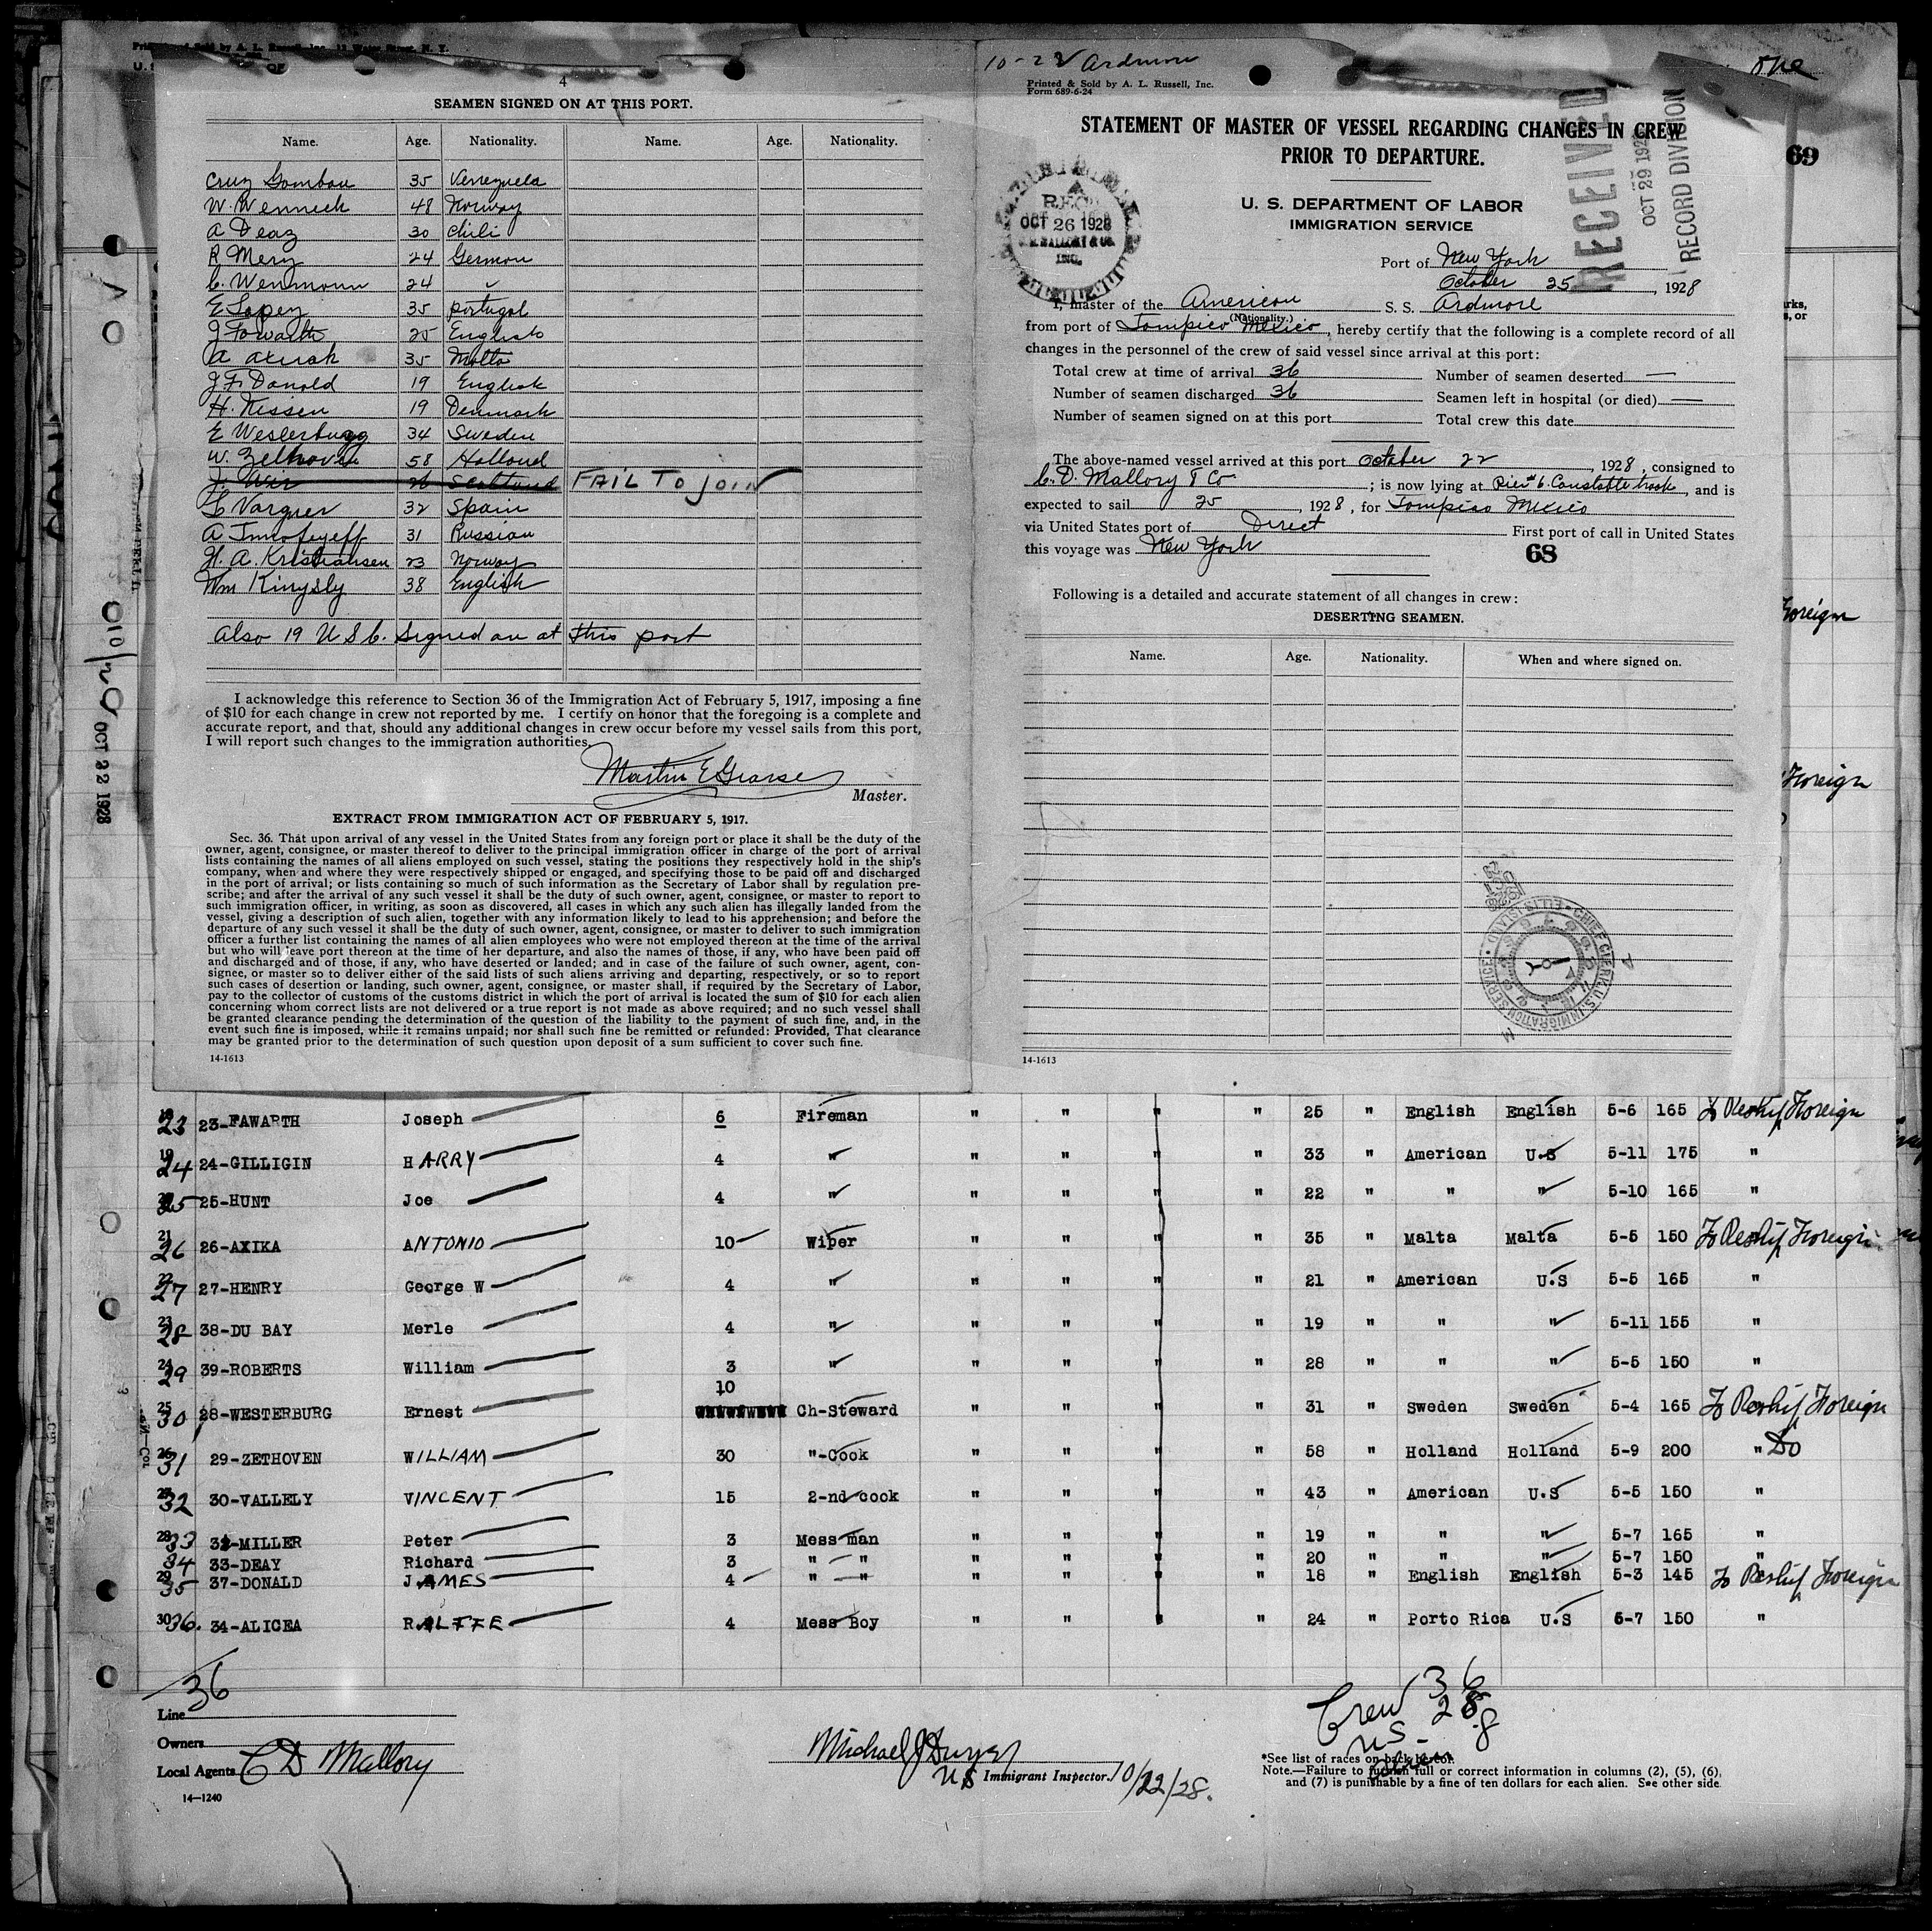 4
SEAMEN SIGNED ON AT THIS PORT.
Name. Age. Nationality. Name. Age. Nationality.
Cruz 35 Venezuela
W. Wennech 48 Norway
A Deaz 30 Chili
R Merz 24 German
C. Wenmonn 24 "
E Lopez 35 Portugal
J Fowarth 25 English
A Axirah 35 Malta
J. F. Donald 19 English
H. Nissen 19 Denmark
E Westerburgg 34 Sweden
W. Zelhoven 58 Holland
J. Weir 26 Scotland FAIL TO JOIN
32 Spain
A Timofeyeff 31 Russian
H. A. Kristiansen 23 Norway
Wm Kingsly 38 English
Also 19 U S C. Signed on at this port
I acknowledge this reference to Section 36 of the Immigration Act of February 5, 1917, imposing a fine
of $10 for each change in crew not reported by me. I certify on honor that the foregoing is a complete and
accurate report, and that, should any additional changes in crew occur before my vessel sails from this port,
I will report such changes to the immigration authorities.
Martin E
Master.
EXTRACT FROM IMMIGRATION ACT OF FEBRUARY 5, 1917.
Sec. 36. That upon arrival of any vessel in the United States from any foreign port or place it shall be the duty of the
owner, agent, consignee, or master thereof to deliver to the principal immigration officer in charge of the port of arrival
lists containing the names of all aliens employed on such vessel, stating the positions they respectively hold in the ship's
company, when and where they were respectively shipped or engaged, and specifying those to be paid off and discharged
in the port of arrival; or lists containing so much of such information as the Secretary of Labor shall by regulation pre-
scribe; and after the arrival of any such vessel it shall be the duty of such owner, agent, consignee, or master to report to
such immigration officer, in writing, as soon as discovered, all cases in which any such alien has illegally landed from the
vessel, giving a description of such alien, together with any information likely to lead to his apprehension; and before the
departure of any such vessel it shall be the duty of such owner, agent, consignee, or master to deliver to such immigration
officer a further list containing the names of all alien employees who were not employed thereon at the time of the arrival
but who will leave port thereon at the time of her departure, and also the names of those, if any, who have been paid off
and discharged and of those, if any, who have deserted or landed; and in case of the failure of such owner, agent, con-
signee, or master so to deliver either of the said lists of such aliens arriving and departing, respectively, or so to report
such cases of desertion or landing, such owner, agent, consignee, or master shall, if required by the Secretary of Labor,
pay to the collector of customs of the customs district in which the port of arrival is located the sum of $10 for each alien
concerning whom correct lists are not delivered or a true report is not made as above required; and no such vessel shall
be granted clearance pending the determination of the question of the liability to the payment of such fine, and, in the
event such fine is imposed, while it remains unpaid; nor shall such fine be remitted or refunded: Provided, That clearance
may be granted prior to the determination of such question upon deposit of a sum sufficient to cover such fine.
14-1613
OCT 22 1928
10-22 Ardmore
Printed & Sold by A. L. Russell, Inc.
Form 689-6-24
one
69
STATEMENT OF MASTER OF VESSEL REGARDING CHANGES IN CREW
PRIOR TO DEPARTURE.
RECEIVED
OCT 29 1928
RECORD DIVISION
U. S. DEPARTMENT OF LABOR
IMMIGRATION SERVICE
REC
OCT 26 1928
C. D. MALLORY & CO.
INC.
Port of New York
October 25, 1928
I, master of the American S. S. Ardmore
(Nationality.)
from port of Tampico Mexico, hereby certify that the following is a complete record of all
changes in the personnel of the crew of said vessel since arrival at this port:
Total crew at time of arrival 36 Number of seamen deserted —
Number of seamen discharged 36 Seamen left in hospital (or died) —
Number of seamen signed on at this port Total crew this date
The above-named vessel arrived at this port October 22, 1928, consigned to
C. D. Mallory & Co; is now lying at Pier #6 Constable hook, and is
expected to sail 25, 1928, for Tampico Mexico
via United States port of Direct First port of call in United States
this voyage was New York
68
Following is a detailed and accurate statement of all changes in crew:
DESERTING SEAMEN.
Name. Age. Nationality. When and where signed on.
CHIEF CLERK, U.S. IMMIGRATION SERVICE • ELLIS ISLAND
14-1613
Foreign
Foreign
18 23 23-FAWARTH Joseph 6 Fireman " " " " 25 " English English 5-6 165 To Reship Foreign
19 24 24-GILLIGIN HARRY 4 " " " " " 33 " American U.S 5-11 175 "
20 25 25-HUNT Joe 4 " " " " " 22 " " " 5-10 165 "
21 26 26-AXIKA ANTONIO 10 Wiper " " " " 35 " Malta Malta 5-5 150 To Reship Foreign
22 27 27-HENRY George W 4 " " " " " 21 " American U.S 5-5 165 "
23 28 38-DU BAY Merle 4 " " " " " 19 " " " 5-11 155 "
24 29 39-ROBERTS William 3 " " " " " 28 " " " 5-5 150 "
25 30 28-WESTERBURG Ernest 10 Ch-Steward " " " " 31 " Sweden Sweden 5-4 165 To Reship Foreign
26 31 29-ZETHOVEN WILLIAM 30 "-Cook " " " " 58 " Holland Holland 5-9 200 " Do
27 32 30-VALLELY VINCENT 15 2-nd cook " " " " 43 " American U.S 5-5 150 "
28 33 32-MILLER Peter 3 Mess man " " " " 19 " " " 5-7 165 "
34 33-DEAY Richard 3 " - " " " " " 20 " " " 5-7 150 "
29 35 37-DONALD JAMES 4 " - " " " " " 18 " English English 5-3 145 To Reship Foreign
30 36. 34-ALICEA RALFFE 4 Mess Boy " " " " 24 " Porto Rica U.S 5-7 150 "
36
Crew 36
US- 28
8
Line
Owners
Local Agents C D Mallory
14-1240
Michael J Dwyer
US Immigrant Inspector. 10/22/28.
*See list of races on back hereof.
Note.—Failure to furnish full or correct information in columns (2), (5), (6),
and (7) is punishable by a fine of ten dollars for each alien. See other side.